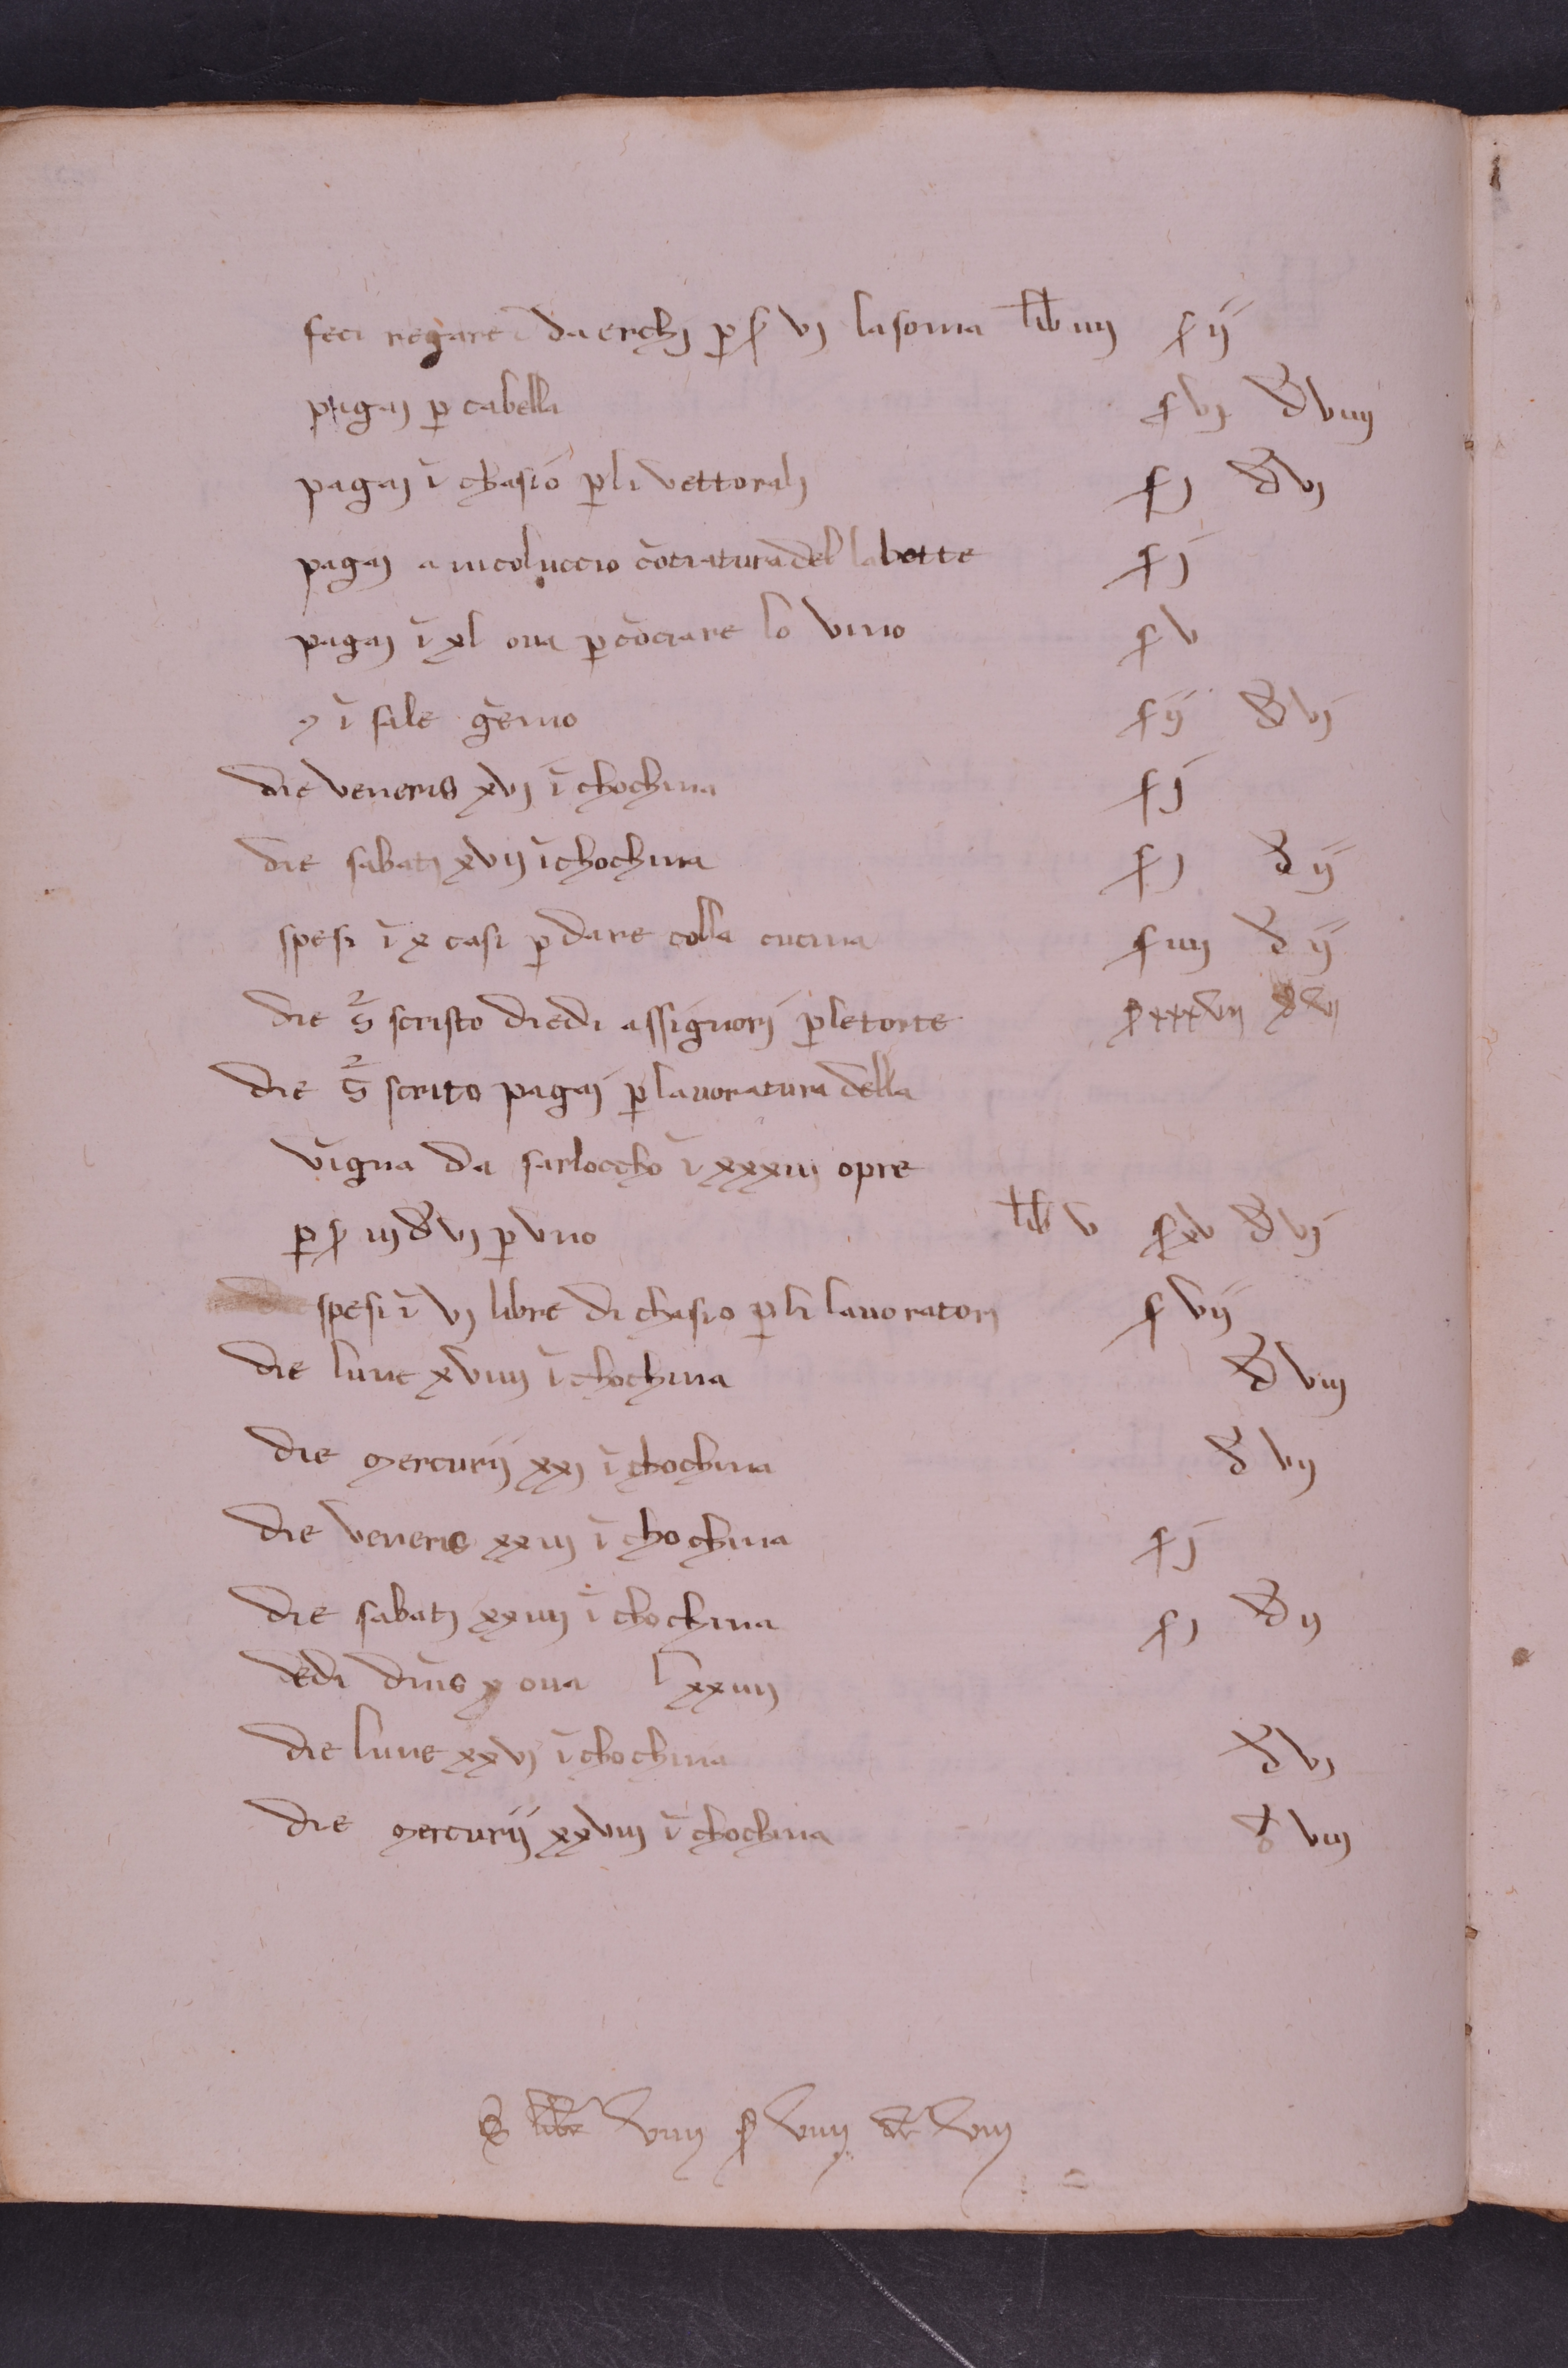 feci regare da erchj p̱ s̱ vj lasoma lib iiij s ij
pagaj p̱ cabella s vj đ viiij
pagaj ī chasio p̱ li vettoralj s j đ vj
pagaj a nicoluccio cōciatura del la botte s j
pagaj ī xl oua p̱ cōciare lo vino s v
ī sale gēmo s ij đ vj
die veneris xvj ī chochina s j
die sabatj xvij ī chochina s j đ ij
spesi ī x casi p̱ dare colla cucina s iiij đ ij
die s̄ scristo diedi assignorj p̱ le torte s xxxvij đ vij
die s̄ scrito pagaj p̱ lauoratura della
vigna da sarloccho ī xxxiij opre
p̱ s iij đ vj p̱ vno lib v s xv đ vj
spesi ī vj libre di chasio p̱ li lauoratorj s vij
die lune xviiij ī chochina đ viij
die mercurij xxj ī chochina đ vij
die veneris xxiij ī chochina s j
die sabatj xxiiij ī chochina s j đ ij
dedi dn̄is x oua lxxiiij
die lune xxvj ī chochina đ vj
die mercurij xxviij ī chochina đ viij
S libr viiij s viiij dr viij